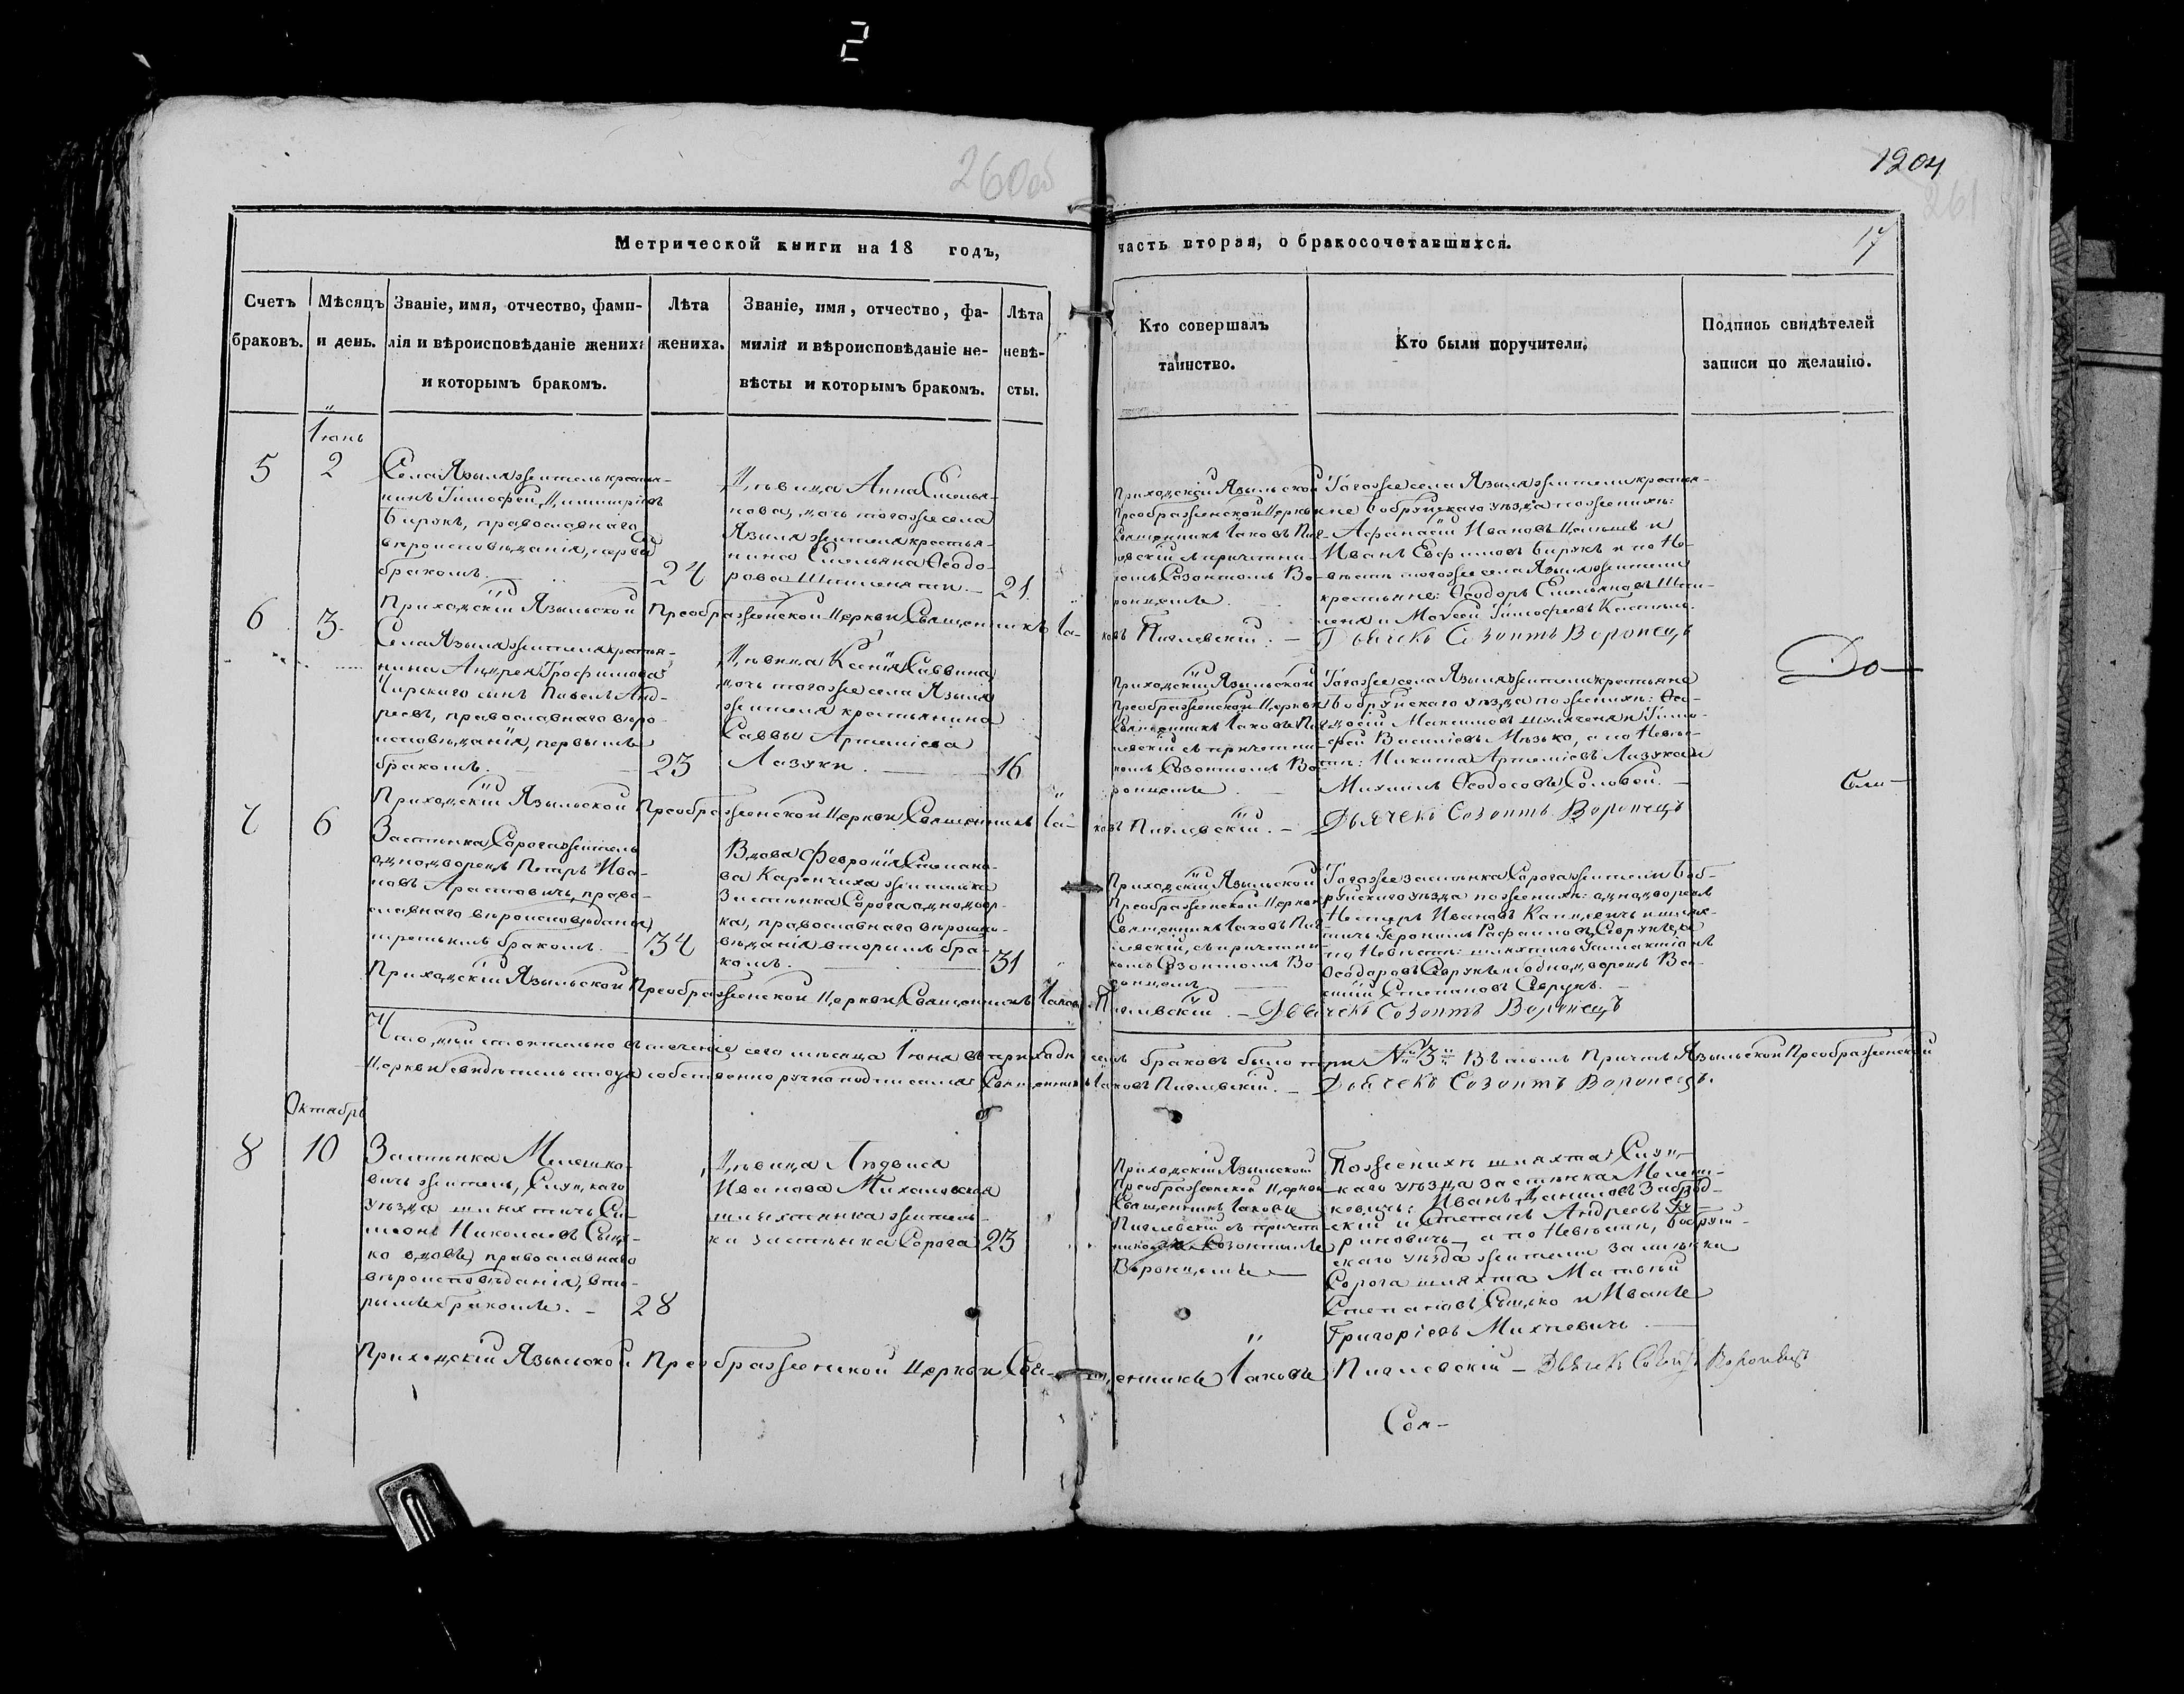 2
260об
1204
261
17
Метрической книги на 18 годъ,
часть вторая, о бракосочетавшихся.
Счетъ браковъ.
Мѣсяцъ и день.
Званіе, имя, отчество, фами-
лія и вѣроисповѣданіе жениха
и которымъ бракомъ.
Лѣта жениха.
Званіе, имя, отчество, фа-
милія и вѣроисповѣданіе не-
вѣсты и которымъ бракомъ.
Лѣта невѣ-
сты.
Кто совершалъ
таинство.
Кто были поручители.
Подпись свидѣтелей
записи по желанію.
Іюнь
5
2
Села Языля житель крестья-
нинъ Тимофей Димитріевъ
Бирукъ, православнаго
вѣроисповѣданія, первымъ
бракомъ.
24
Дѣвица Анна Емелья-
нова, дочь тогоже села
Языля жителя крестья-
нина Емельяна Ѳеодо-
рова
21
Приходскій Языльской
Преображенской Церкви
Священникъ Іаковъ
съ причетни-
комъ Созонтомъ Во-
ронцемъ.
Тогоже села Языля жители крестья-
не Бобруйскаго уѣзда по женихѣ:
Афанасій Ивановъ и
Иванъ Евфимовъ Бирукъ и по Не-
вѣстѣ тогоже села Языля жители
крестьяне: Ѳеодоръ Емельяновъ
и Моѵсей Тимофеевъ
Приходскій Языльской Преображенской Церкви Священникъ Іа-
ковъ — Дьячекъ Созонтъ Воронецъ
6
3
Села Языля жителя крестья-
нина Андрея Трофимова
сынъ Павелъ Анд-
реевъ, православнаго вѣро-
исповѣданія, первымъ
бракомъ.
23
Дѣвица Ксенія Саввина
дочь тогоже села Языля
жителя крестьянина
Саввы Артеміева
Лазуки.
16
Приходскій Языльской
Преображенской Церкви
Священникъ Іаковъ
съ причетни-
комъ Созонтомъ Во-
ронцемъ.
Тогоже села Языля жители крестьяне
Бобруйскаго уѣзда по женихѣ: Ѳео-
досій Максимовъ и Тимо-
фей Василіевъ а по Невѣ-
стѣ: Никита Артеміевъ Лазука и
Михаилъ Ѳеодосовъ Соловей.
До-
Сли-
Приходскій Языльской Преображенской Церкви Священникъ Іа-
ковъ — Дьячекъ Созонтъ Воронецъ
7
6
Застѣнка Сорога житель
однодворецъ Петръ Ива-
новъ право-
славнаго вѣроисповѣданія
третьимъ бракомъ.
34
Вдова Февронія Степано-
ва жителька
Застѣнка Сорога однодвор-
ка, православнаго вѣроиспо-
вѣданія вторымъ бра-
комъ.
31
Приходскій Языльской
Преображенской Церкви
Священникъ Іаковъ
съ причетни-
комъ Созонтомъ Во-
ронцомъ
Тогоже застѣнка Сорога жители Боб-
руйскаго уѣзда по женихѣ: однодворецъ
Ивановъ и шлях-
тичъ Іеронимъ Рафаиловъ а
по Невѣстѣ: шляхтичъ
Ѳеодоровъ и однодворецъ Ва-
силій Степановъ
Приходскій Языльской Преображенской Церкви Священникъ Іаковъ
— Дьячекъ Созонтъ Воронецъ
Что дѣйствительно въ теченіе сего мѣсяца Іюня въ приходѣ семъ браковъ было три №3 Въ томъ Причтъ Языльской Преображенской
Церкви свидѣтельствуя собственноручно подписался Священникъ Іаковъ — Дьячекъ Созонтъ Воронецъ.
Октябрь
8
10
Застѣнка Мелешко-
вичъ житель, Слуцкаго
уѣзда шляхтичъ Си-
меонъ Николаевъ Сыць-
ко вдовъ православнаго
вѣроисповѣданія, вто-
рымъ бракомъ. —
28
Дѣвица Людвиса
Иванова Михаловская
шляхтянка житель-
ка застѣнка Сорога
23
Приходскій Языльской
Преображенской Церкви
Священникъ Іаковъ
съ причет-
никомъ Созонтомъ
Воронцемъ
По женихѣ шляхта Слуц-
каго уѣзда застѣнка Мелеш-
ковичъ: Иванъ Даниловъ
и Степанъ Андреевъ
а по Невѣстѣ, Бобруй-
скаго уѣзда жители застѣнка
Сорога шляхта Матвѣй
Степановъ Сыцько и Иванъ
Григоріевъ Михневичъ
Приходскій Языльской Преображенской Церкви Священникъ Іаковъ — Дьячекъ Созонтъ Воронецъ
Сол-